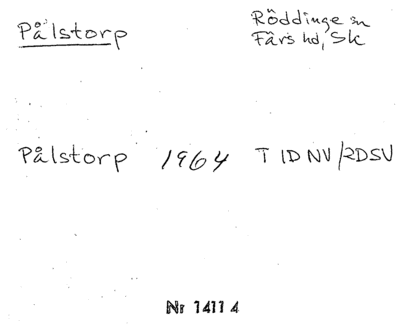 Pålstorp
Röddinge sn
Färs hd, Sk
Pålstorp 1964 T 1D NV/2D SV
Nr 1411 4